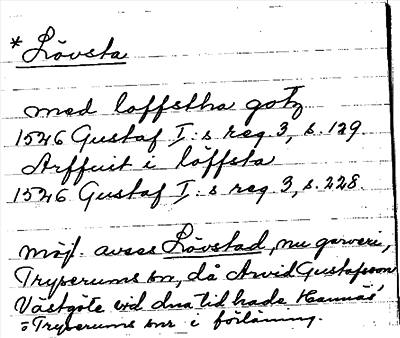 * Lövsta
med loffstha gotz
1526 Gustaf I:s reg. 3, s. 129.
Arffuit i löffsta
1526 Gustaf I:s reg 3, s. 228.
möjl. avses Lövstad, nu garveri,
Tryserums sn, då Arvid Gustafsson
Västgöte vid dna tid hade Hannäs,
o Tryserums snr i förläning.